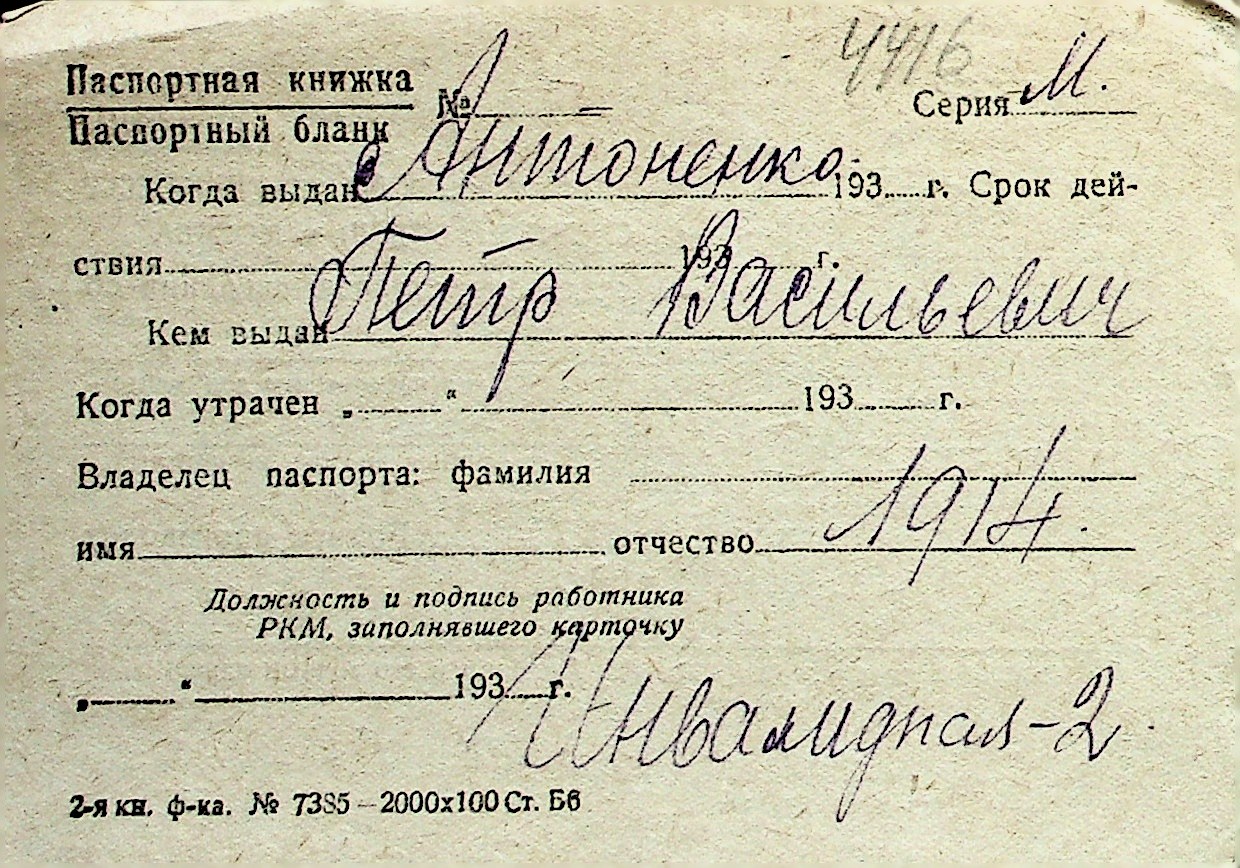 4416
Паспортная книжка
Паспортный бланк № Серия М.
Антоненко
Когда выдан 193 г. Срок дей-
ствия 193 г.
Петр Васильевич
Кем выдан
Когда утрачен „ “ 193 г.
Владелец паспорта: фамилия
1914.
имя отчество
Должность и подпись работника
РКМ, заполнявшего карточку
„ “ 193 г.
Инвалидная-2.
2-я кн. ф-ка. № 7385—2000х100 Ст. Бб